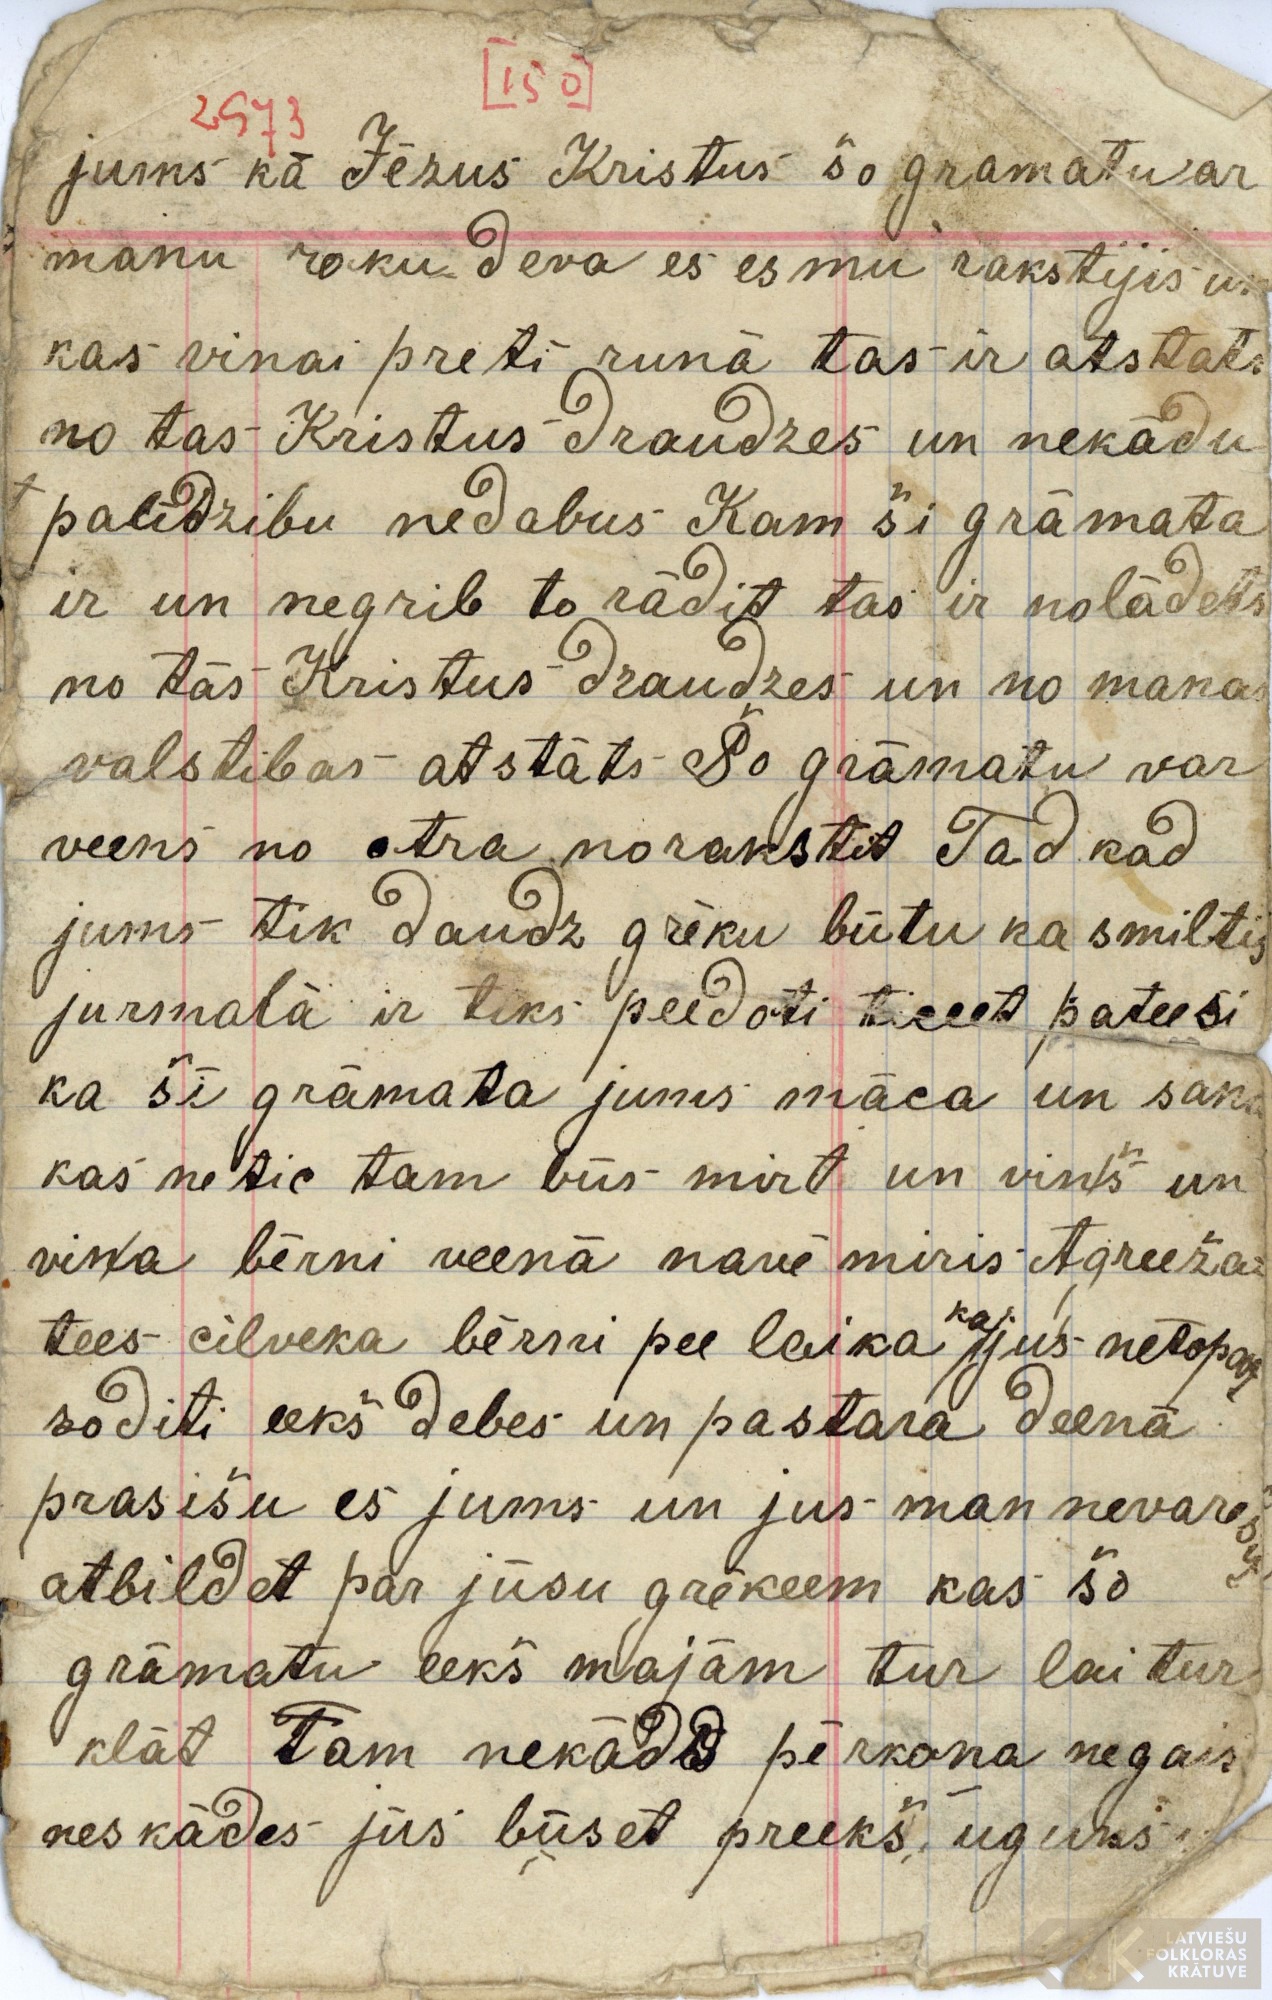 [150]
2973
jums kā Jēzus Kristus šo gramatu ar
manu roku deva es esmu rakstijis un
kas vinai preti runā tas ir atstats
no tas Kristus draudzes un nekādu
palidzibu nedabus Kam ši grāmata
ir un negrib to rādit tas ir nolādets
no tās Kristus draudzes un no manas
valstibas atstāts Šo grāmatu var
veens no otra norakstit Tad kad
jums tik daudz grēku būtu ka smiltis
jurmalā ir tiks peedoti ticeet pateesi
ka šī grāmata jums māca un saka
kas netic tam būs mirt un vinš un
vina bērni veenā navē miris Agreeža
tees cilveka bērni pee laika kaj jus netopat
soditi eekš debes un pastara deenā
prasišu es jums un jus man nevaresit
atbildet par jūsu grēkeem kas šo
grāmatu eekš majām tur lai tur
klāt Tam nekāds pērkona negais
neskādes jūs būset preekš uguns
LATVIEŠU
FOLKLORAS
KRĀTUVE